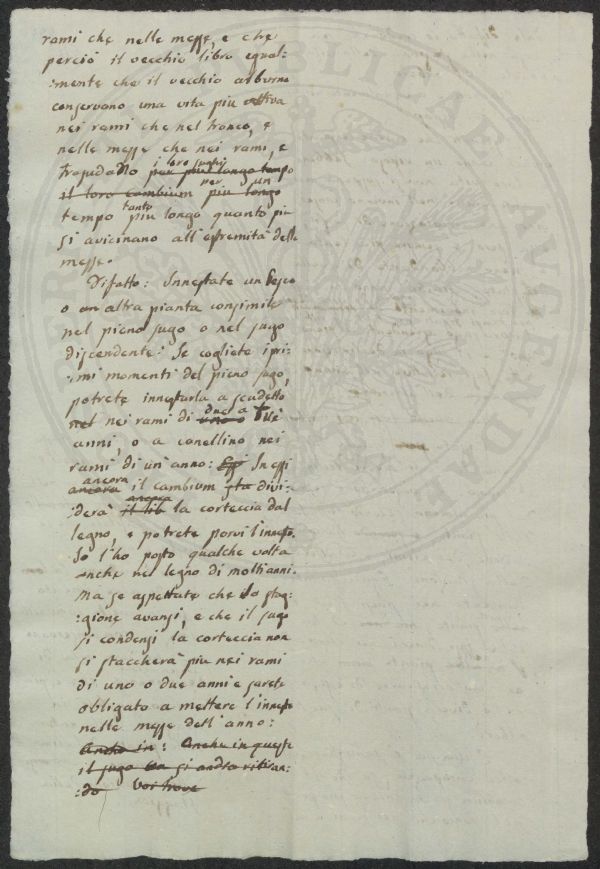 rami che nelle messe, e che
perciò il vecchio libro equal-
:mente che il vecchio alburno
conservano una vita più attiva
nei rami che nel tronco, e
nelle messe che nei rami, e
trasudano i loro sughi per più lungo tempo
il loro cambium per più longo un
tempo tanto più longo quanto più
si avicinano all'estremità delle
messe.
Difatto: Innestate un Pesco
o un altra pianta consimile
nel pieno sugo o nel sugo
discendente: Se cogliete i pri-
:mi momenti del pieno sugo,
potrete innestarla a scudetto
nel nei rami di uno o due a tre
anni, o a canellino nei
rami di un anno: Essi In essi
ancora ancora il cambium sta divi-
:derà il lib ancora la corteccia dal
legno, e potrete porvi l'innesto.
Io l'ho posto qualche volta
anche nel legno di molti anni.
Ma se aspettate che la stag-
:gione avansi, e che il sugo
si condensi la corteccia non
si staccherà più nei rami
di uno o due anni e sarete
obligato a mettere l'innesto
nelle messe dell'anno:
Anche in: Anche in queste
il sugo si andrà ritiran-
:do Voi trove